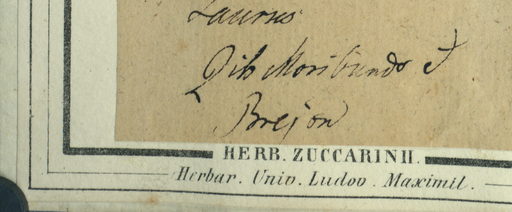 Laurus
Moribundo
Brejon
HERB. ZUCCARINII.
Herbar. Univ. Ludov. Maximil.